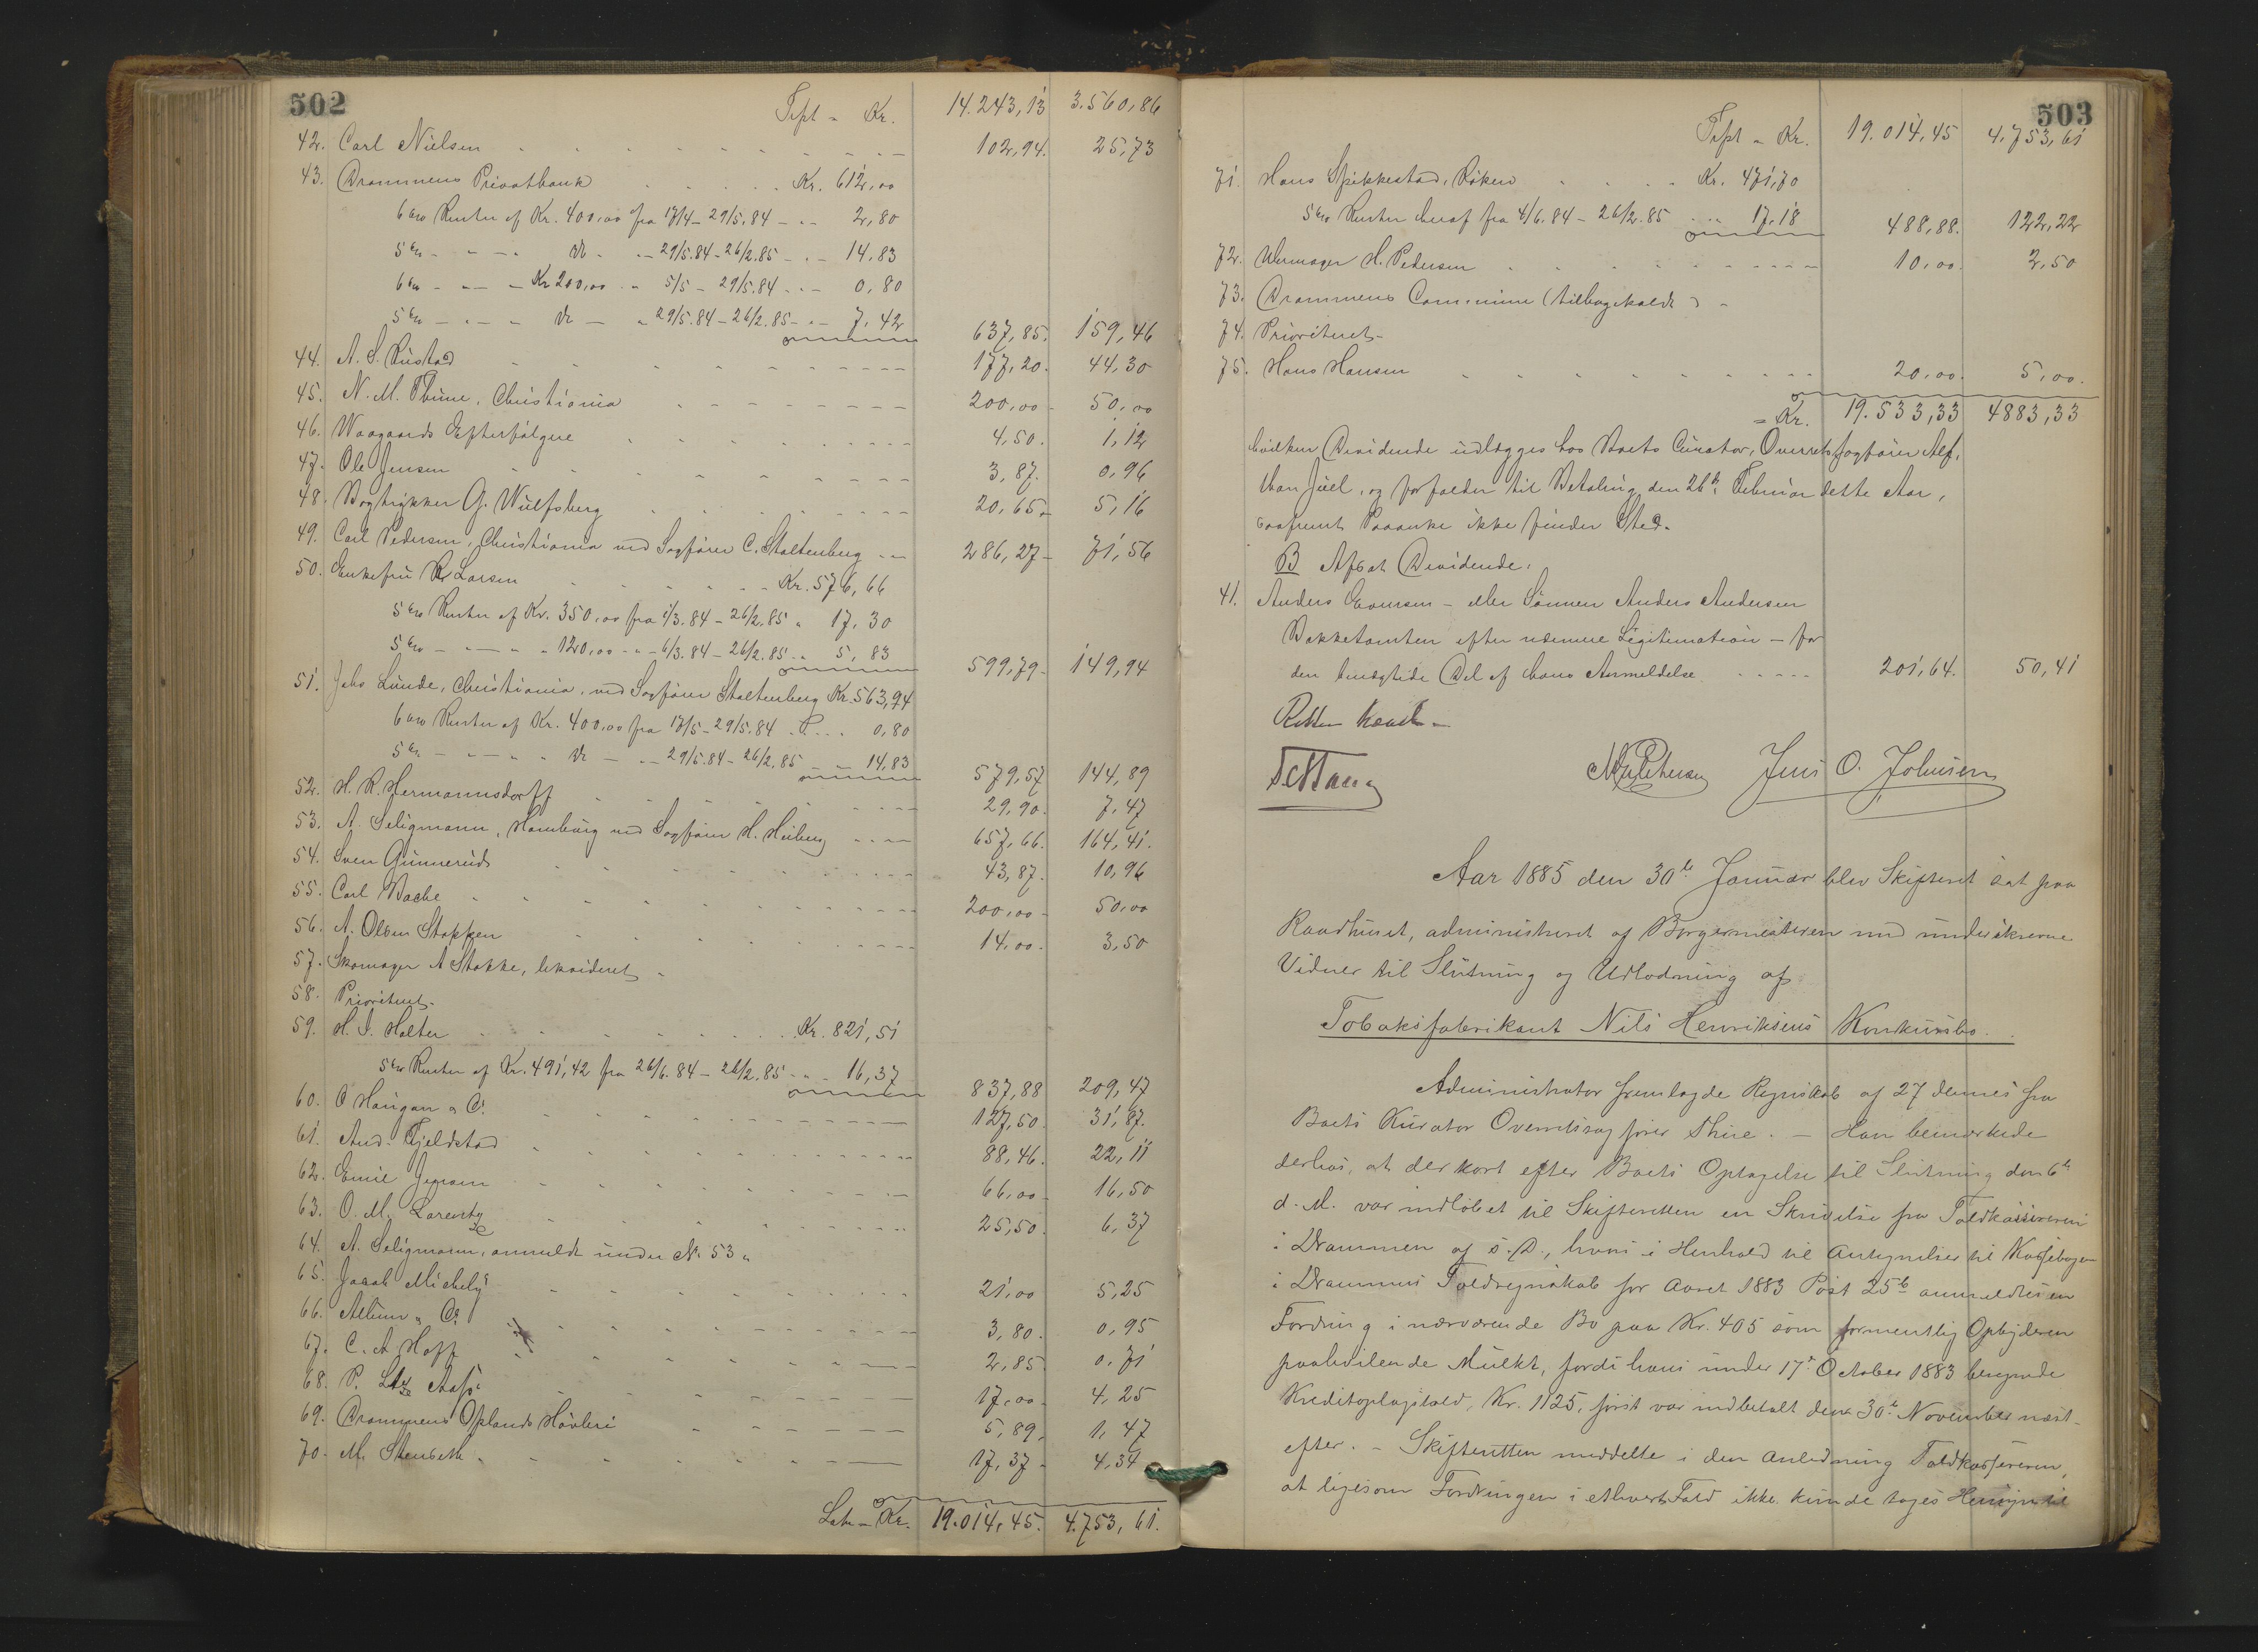 502
Trspt - Kr. 14.243,13 3.560,86
42. Carl Nielsen 102,94. 25,73
43. Drammens Privatbank Kr. 612,00
6% Renter af Kr. 400,00 fra 17/4 - 29/5.84 - 2,80
5% - - - do - - 29/5.84 - 26/2.85 - - 14,83
6% - - - Kr 200,00 - 5/5 - 29/5.84 - - 0,80
5% - - - do - - 29/5.84 - 26/2.85 - - 7,42 637,85. 159,46
44. A. S. Rustad 177,20. 44,30
45. N. M. Thune, Christiania 200,00 - 50,00
46. Waagaards Efterfølgere 4,50. 1,12
47. Ole Jensen 3,87. 0,96
48. Bogtrykker G. Wulfsberg 20,65 - 5,16
49. Carl Pedersen, Christiania ved Sagfører C. Stoltenberg 286,27 - 71,56
50. Enkefru R Larsen Kr. 576,66
5% Renter af Kr. 350,00 fra 1/3.84 - 26/2.85 " 17,30
5% - - - " 120,00 - - 6/3.84 - 26/2.85 - 5,83 599,79 - 149,94
51. Johs Lunde, Christiania, ved Sagfører Stoltenberg Kr. 563,94
6% Renter af Kr. 400,00 fra 17/5 - 29/5.84 - 0,80
5% - - - - do - - 29/5.84 - 26/2.85 - - 14,83 579,57 144,89
52. H. R. Hermannsdorff 29,90. 7,47
53. A. Seligmann, Hamburg ved Sagfører H. Heiberg 657,66. 164,41.
54. Sven Gunnerud 43,87. 10,96
55. Carl Bache 200,00 - 50,00
56. A. Olsen Stoppen 14,00. 3,50
57. Skomager A Stokke, likvideret -
58. Prioritert.
59. H. I. Holter Kr. 821,51
5% Renter af Kr. 491,42 fra 26/6.84 - 26/2.85 - - 16,37 837,88 209,47
60. O Haugan & Co. 127,50. 31,87.
61. And. Fjeldstad 88,46. 22,11
62. Emil Jensen 66,00 - 16,50
63. O. M. Lorentz 25,50. 6,37
64. A. Seligmann, anmeldt under No 53 "
65. Jacob Michely 21,00 5,25
66. Album & Co. 3,80. 0,95
67. C. A. Hoff 2,85. 0,71
68. P. Ltz Aass 17,00 - 4,25
69. Drammens Oplands Høvleri 5,89, 1,47
70. M. Stenseth 17,37 - 4,34
Lat. - Kr. 19.014,45. 4.753,61.
503
Trspt - Kr. 19.014,45 4,753,61
71. Hans Spikkestad, Røken Kr. 471,70
5% Renter heraf fra 4/6.84 - 26/2.85 17,18 488,88. 122,22
72. Uhrmager H. Pedersen 10,00. 2,50
73. Drammens Commune (tilbagekaldt) -
74. Prioriteret -
75. Hans Hansen 20,00. 5,00.
= Kr. 19.533,33 4883,33
hvilken Dividende udlægges hos Boets Curator, Overretssagfører Alf.
Ihan Juel, og forfalder til Betaling den 26de Februar dette Aar,
saafremt Paaanke ikke finder Sted.
B Afsat Dividende.
41. Anders Evensen - eller Sønnen Anders Andersen
Bakketomten efter nærmere Legitimation - for
den benægtede Del af hans Anmeldelse 201,64. 50,41
Retten hævet -
Jens O. Johnsen
Aar 1885 den 30te Januar blev Skifteret sat paa
Raadhuset, administreret af Borgermesteren med underskrevne
Vidner til Slutning og Udlodning af
Tobaksfabrikant Nils Henriksens Konkursbo.
Administrator fremlagde Regnskab af 27 dennes fra
Boets Kurator Overretssagfører Thue. - Han bemærkede
derhos, at der kort efter Boets Optagelse til Slutning den 6te
d. M. var indløbet til Skifteretten en Skrivelse fra Toldkassereren
i Drammen af s. D., hvori i Henhold til Antegnelser til Kassebogen
i Drammens Toldregnskab for Aaret 1883 Post 25b anmeldtes en
Fordring i nærværende Bo paa Kr. 405 som formentlig Opbyderen
paahvilende Mulkt, fordi hans under 17de October 1883 beregnede
Kreditoplagstold, Kr. 1125, først var indbetalt den 30te November næst-
efter. - Skifteretten meddelte i den Anledning Toldkassereren,
at ligesom Fordringen i ethvert Fald ikke kunde tages Hensyn til